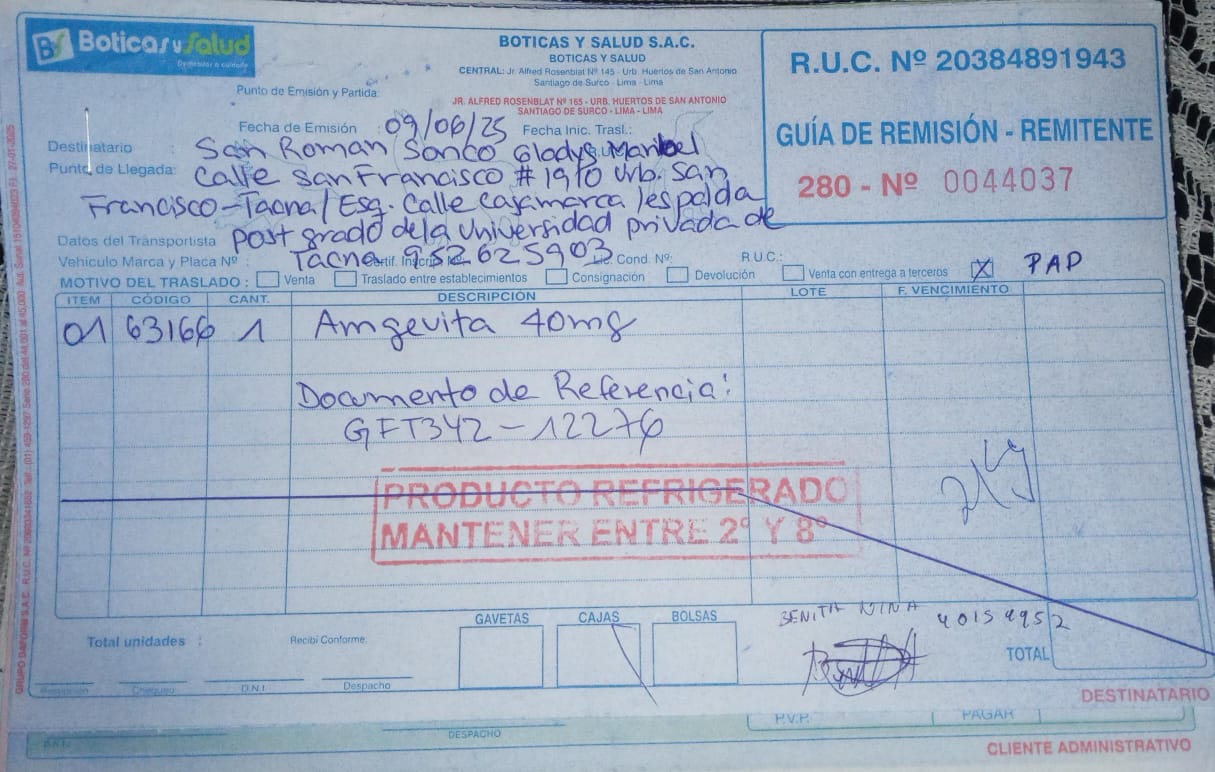 BS Boticas y Salud
Dedicados a cuidarte
BOTICAS Y SALUD S.A.C.
BOTICAS Y SALUD
CENTRAL: Jr. Alfred Rosenblat Nº 145 - Urb. Huertos de San Antonio
Santiago de Surco - Lima - Lima
Punto de Emisión y Partida:
JR. ALFRED ROSENBLAT Nº 165 - URB. HUERTOS DE SAN ANTONIO
SANTIAGO DE SURCO - LIMA - LIMA
R.U.C. Nº 20384891943
GUÍA DE REMISIÓN - REMITENTE
280 - Nº 0044037
Fecha de Emisión : 09/06/25 Fecha Inic. Trasl.:
Destinatario : San Roman Sonco Gladys Maribel
Punto de Llegada: Calle San Francisco # 1910 Urb. San
Francisco - Tacna / Esq. Calle Cajamarca / espalda
post grado de la Universidad privada de
Datos del Transportista
Tacna 952625903
Vehículo Marca y Placa Nº : Certif. Inscrip. Nº: Lic. Cond. Nº: R.U.C.:
MOTIVO DEL TRASLADO : Venta Traslado entre establecimientos Consignación Devolución Venta con entrega a terceros X PAD
ITEM CÓDIGO CANT. DESCRIPCIÓN LOTE F. VENCIMIENTO
01 63166 1 Amgevita 40mg
Documento de Referencia:
GFT342-12276
PRODUCTO REFRIGERADO
MANTENER ENTRE 2º Y 8º
GAVETAS CAJAS BOLSAS
BENITA NINA 40154952
Total unidades : Recibí Conforme:
TOTAL
Recepción Chequeo D.N.I. Despacho
DESTINATARIO
P.V.P. PAGAR
D.N.I. DESPACHO
CLIENTE ADMINISTRATIVO